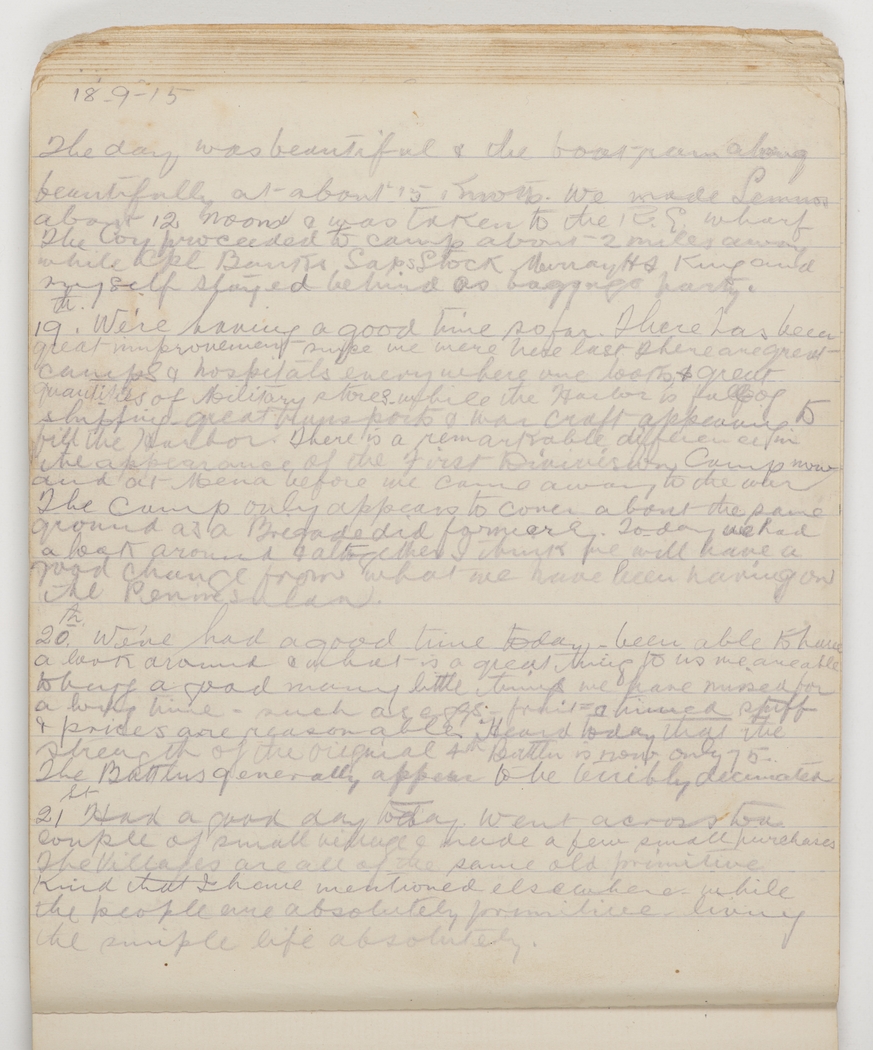 18-9-15
The day was beautiful & the boat ran along
beautifully at about 15 knots. We made Lemnos
about 12 noon & was taken to the R.E. wharf
The Coy proceeded to camp about 2 miles away
while Cpl Banks, Saps Stock, Murray H & King and
myself stayed behind as baggage party.
19th. We're having a good time so far. There has been
great improvement since we were here last there are great
camps & hospitals everywhere one looks & great
quantities of Military stores while the Harbor is full of
shipping - great transports & war craft appearing to
fill the Harbor. There is a remarkable difference in
the appearance of the First Division Camp now
and at Mena before we came away to the war
The Camp only appears to cover about the same
ground as a Brigade did formerly. To-day we had
a look around & altogether I think we will have a
good change from what we have been having on
the Peninsula.
20th. We've had a good time today - been able to have
a look around & what is a great thing to us we are able
to buy a good many little things we have missed for
a long time - such as eggs - fruit = tinned stuff
& prices are reasonable. Heard today that the
strength of the original 4th Battln is now only 75.
The Battlns generally appear to be terribly decimated
21st Had a good day today. Went across to a
couple of small villages & made a few small purchases
The Villages are all of the same old primitive
kind that I have mentioned elsewhere - while
the people are absolutely primitive - living
the simple life absolutely.